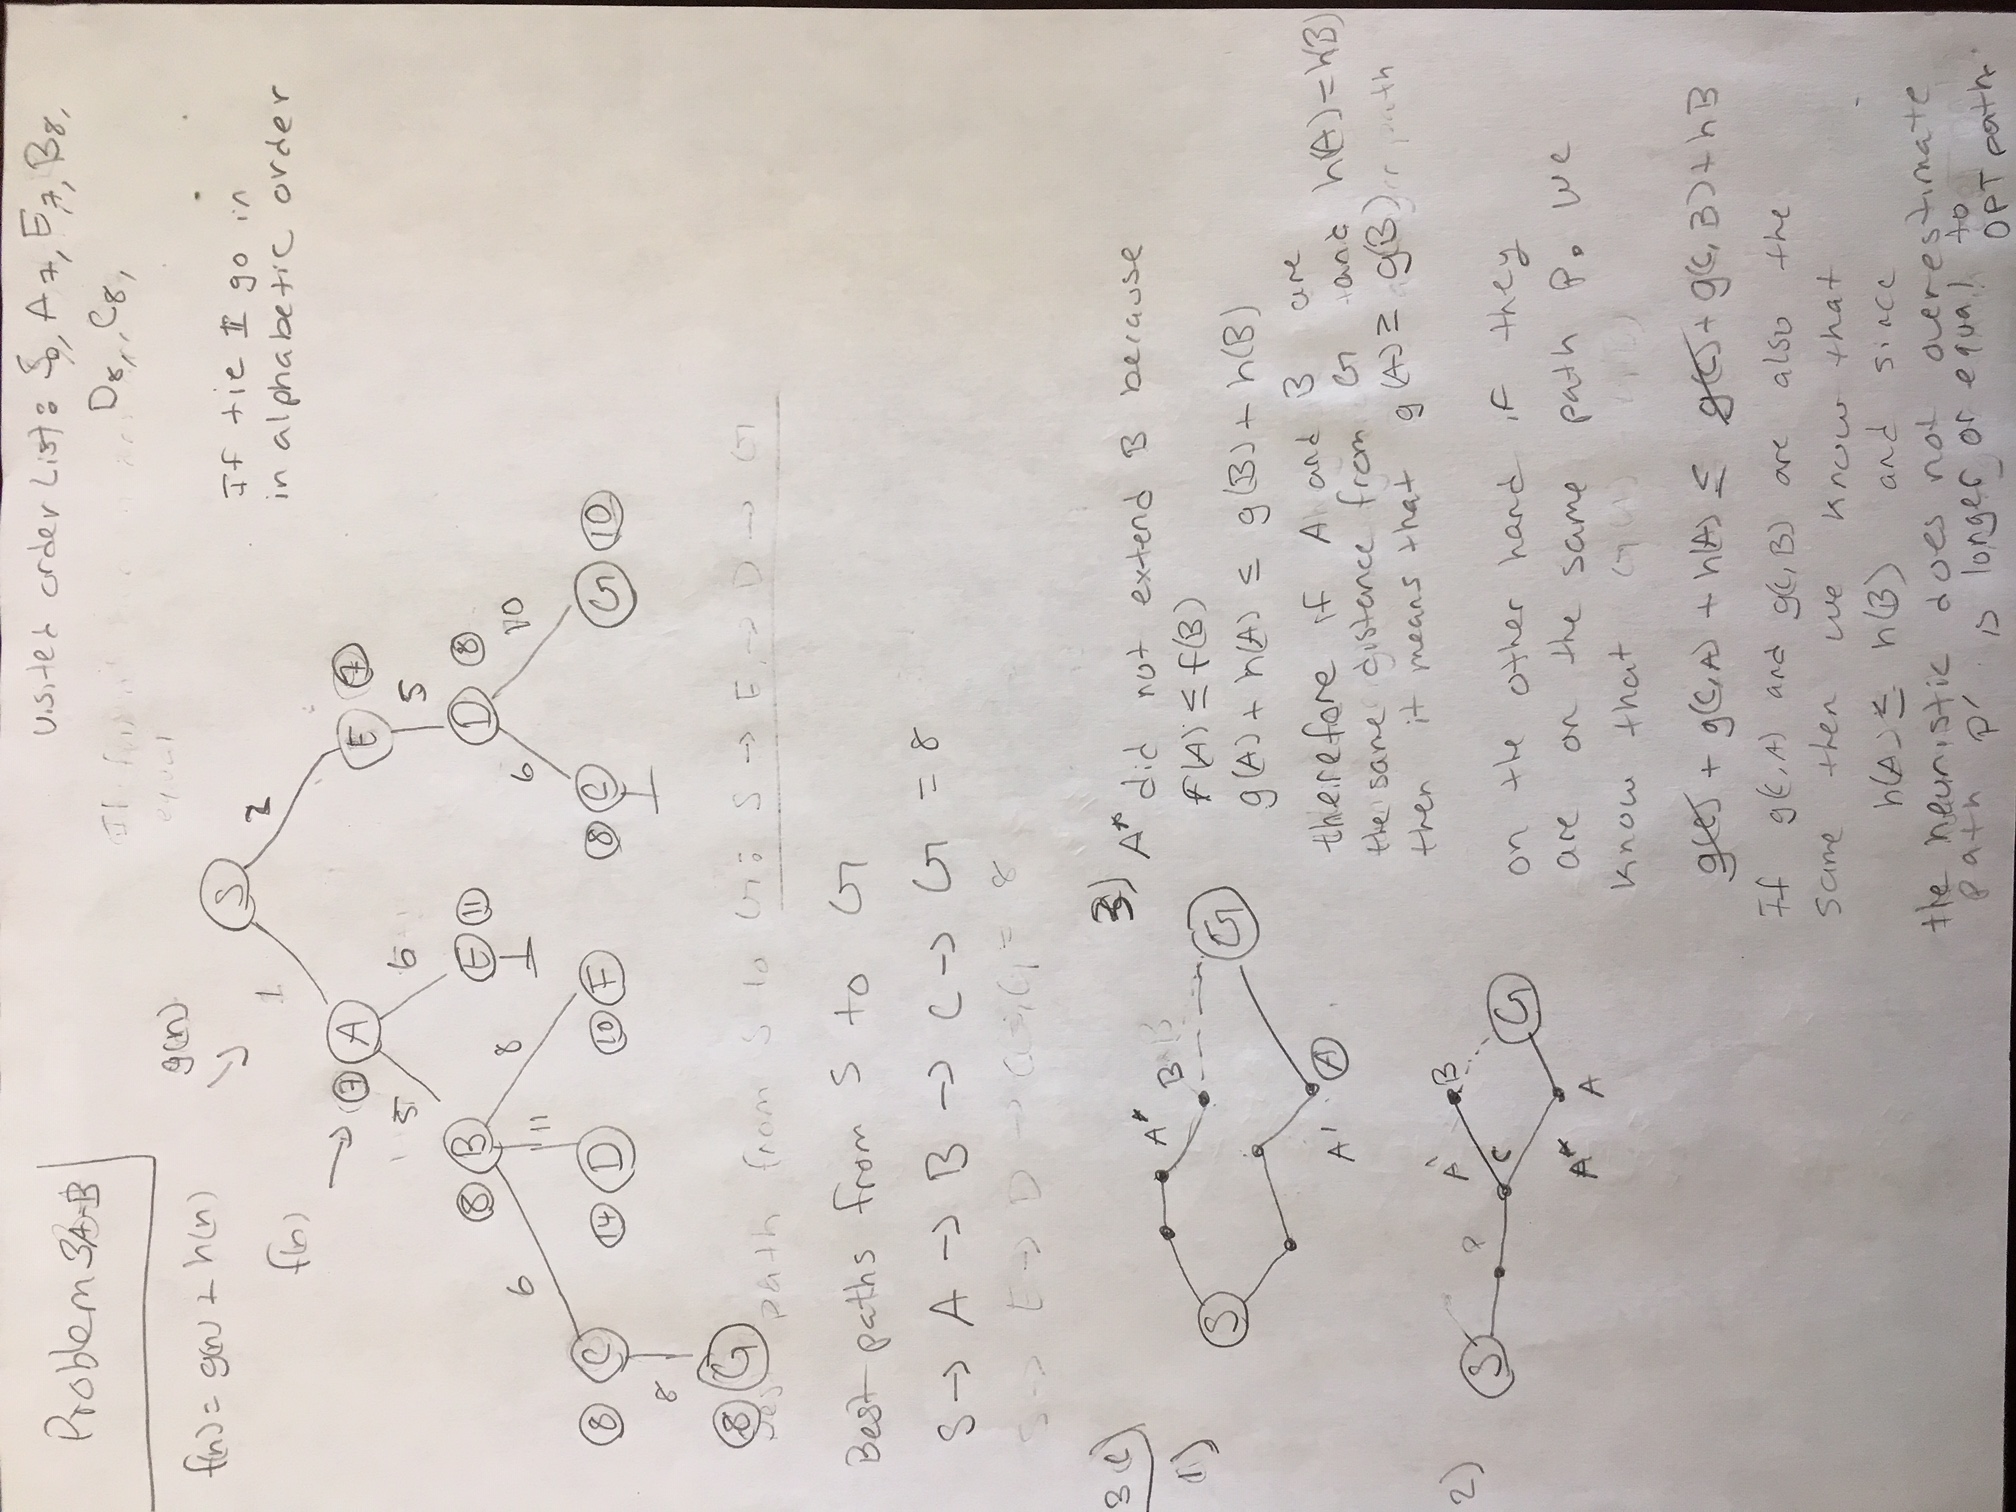 Problem 3A-B
visited order List: S0, A7, E7, B8,
D8, C8,
If
equal
f(n) = g(n) + h(n)
g(n)
f(n)
If tie I go in
in alphabetic order
S
1 2
7 A E 7
5 6 5
8 B E 11 D 8
6 11 8 6 10
8 C 14 D 10 F 8 C G 10
8
8 G
path from S to G: S → E → D → G
Best paths from S to G
S → A → B → C → G = 8
S → E → D → C → G = 8
3C)
1)
S A* B G
A' A
2)
S P A' B C G
A* A
3) A* did not extend B because
F(A) ≤ f(B)
g(A) + h(A) ≤ g(B) + h(B)
therefore if A and B are
the same distance from G and h(A) = h(B)
then it means that g(A) ≥ g(B) path
on the other hand if they
are on the same path P. We
know that
g(C) + g(C,A) + h(A) ≤ g(C) + g(C,B) + hB
If g(C,A) and g(C,B) are also the
same then we know that
h(A) ≤ h(B) and since
the heuristic does not overestimate
path P' is longer or equal to
OPT path